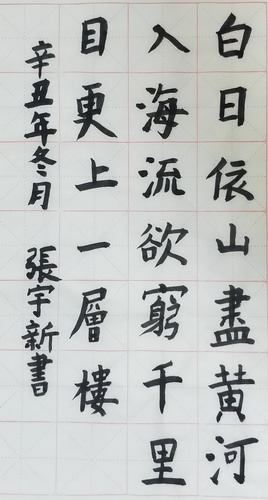 白日依山盡黃河
入海流欲窮千里
目更上一層樓
辛丑年冬月 張宇新書